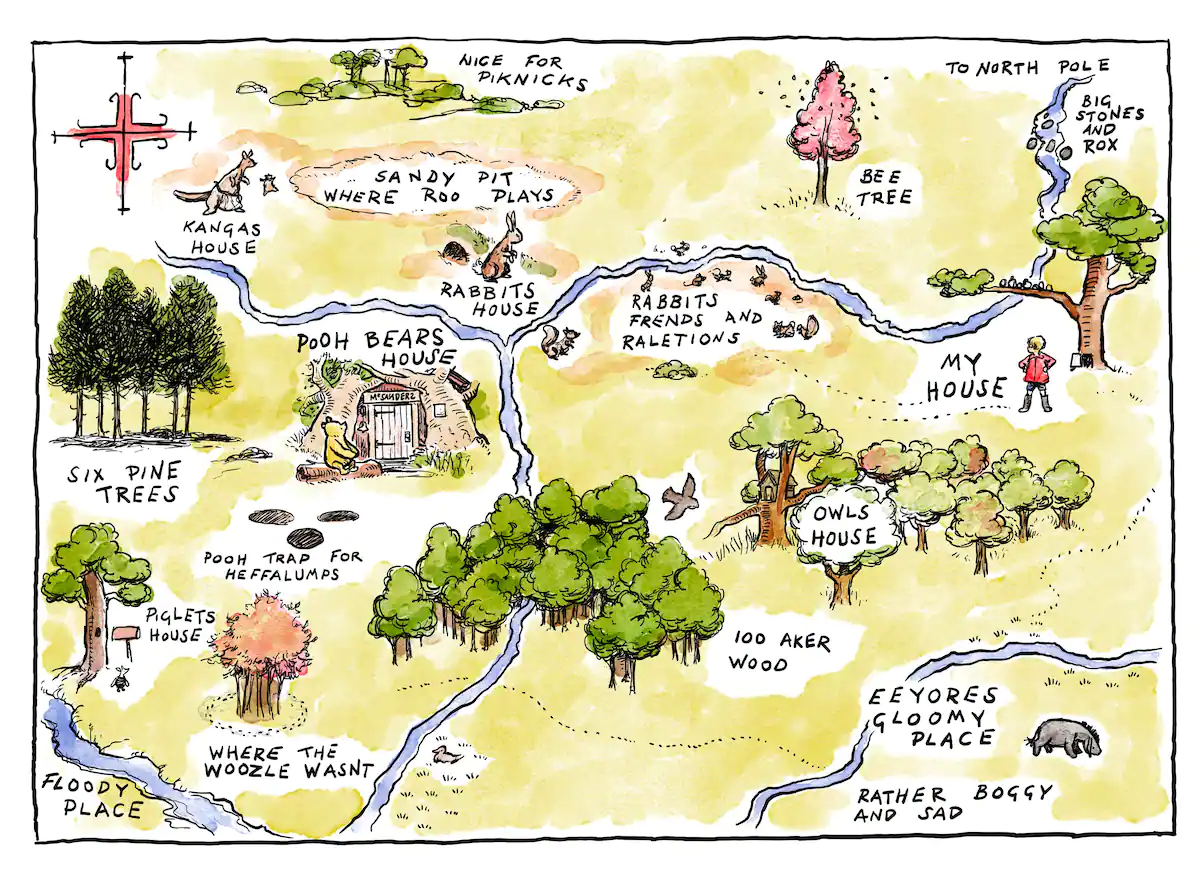 NICE FOR
PIKNICKS
TO NORTH POLE
BIG
STONES
AND
ROX
BEE
TREE
SANDY PIT
WHERE ROO PLAYS
KANGAS
HOUSE
RABBITS
HOUSE
RABBITS
FRENDS AND
RALETIONS
POOH BEARS
HOUSE
MR SANDERZ
MY
HOUSE
SIX PINE
TREES
OWLS
HOUSE
POOH TRAP FOR
HEFFALUMPS
PIGLETS
HOUSE
100 AKER
WOOD
EEYORES
GLOOMY
PLACE
WHERE THE
WOOZLE WASNT
FLOODY
PLACE
RATHER BOGGY
AND SAD